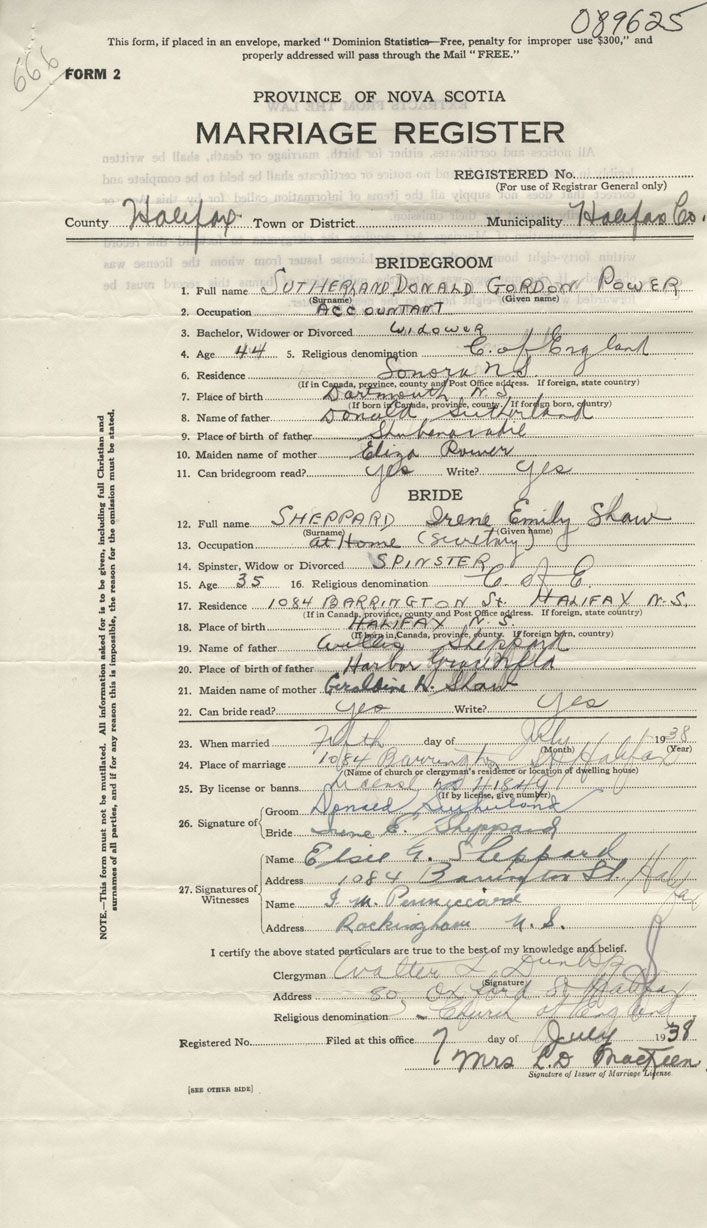 089625
This form, if placed in an envelope, marked "Dominion Statistics—Free, penalty for improper use $300," and
properly addressed will pass through the Mail "FREE."
666
FORM 2
PROVINCE OF NOVA SCOTIA
MARRIAGE REGISTER
REGISTERED No.
(For use of Registrar General only)
County Halifax Town or District Municipality Halifax Co.
BRIDEGROOM
1. Full name SUTHERLAND DONALD GORDON POWER
(Surname) (Given name)
2. Occupation ACCOUNTANT
3. Bachelor, Widower or Divorced WIDOWER
4. Age 44 5. Religious denomination C. of England
6. Residence Sonora N.S.
(If in Canada, province, county and Post Office address. If foreign, state country)
7. Place of birth Dartmouth N.S.
(If born in Canada, province, county. If foreign born, country)
8. Name of father Donald Sutherland
9. Place of birth of father Shubenacadie
10. Maiden name of mother Eliza Power
11. Can bridegroom read? yes Write? yes
BRIDE
12. Full name SHEPPARD Irene Emily Shaw
(Surname) (Given name)
13. Occupation at Home (Secretary)
14. Spinster, Widow or Divorced SPINSTER
15. Age 35 16. Religious denomination C. of E.
17. Residence 1084 BARRINGTON St. HALIFAX N.S.
(If in Canada, province, county and Post Office address. If foreign, state country)
18. Place of birth HALIFAX N.S.
(If born in Canada, province, county. If foreign born, country)
19. Name of father Willis Sheppard
20. Place of birth of father Harbor Grace Nfld
21. Maiden name of mother Geraldine W. Shaw
22. Can bride read? yes Write? yes
23. When married day of July 1938
(Month) (Year)
24. Place of marriage 1084 Barrington St Halifax
(Name of church or clergyman's residence or location of dwelling house)
25. By license or banns. License no 41849
(If by license, give number)
26. Signature of Groom Donald Sutherland
Bride Irene E. Sheppard
27. Signatures of Witnesses
Name Elsie G. Sheppard
Address 1084 Barrington St. Halifax
Name I. M.
Address Rockingham N.S.
I certify the above stated particulars are true to the best of my knowledge and belief.
Clergyman Walter L. Dunlop
(Signature)
Address 80 Oxford St Halifax
Religious denomination Church of England
Registered No. Filed at this office 7 day of July 1938
Mrs L.D MacKeen
Signature of Issuer of Marriage License
[SEE OTHER SIDE]
NOTE.—This form must not be mutilated. All information asked for is to be given, including full Christian and
surnames of all parties, and if for any reason this is impossible, the reason for the omission must be stated.